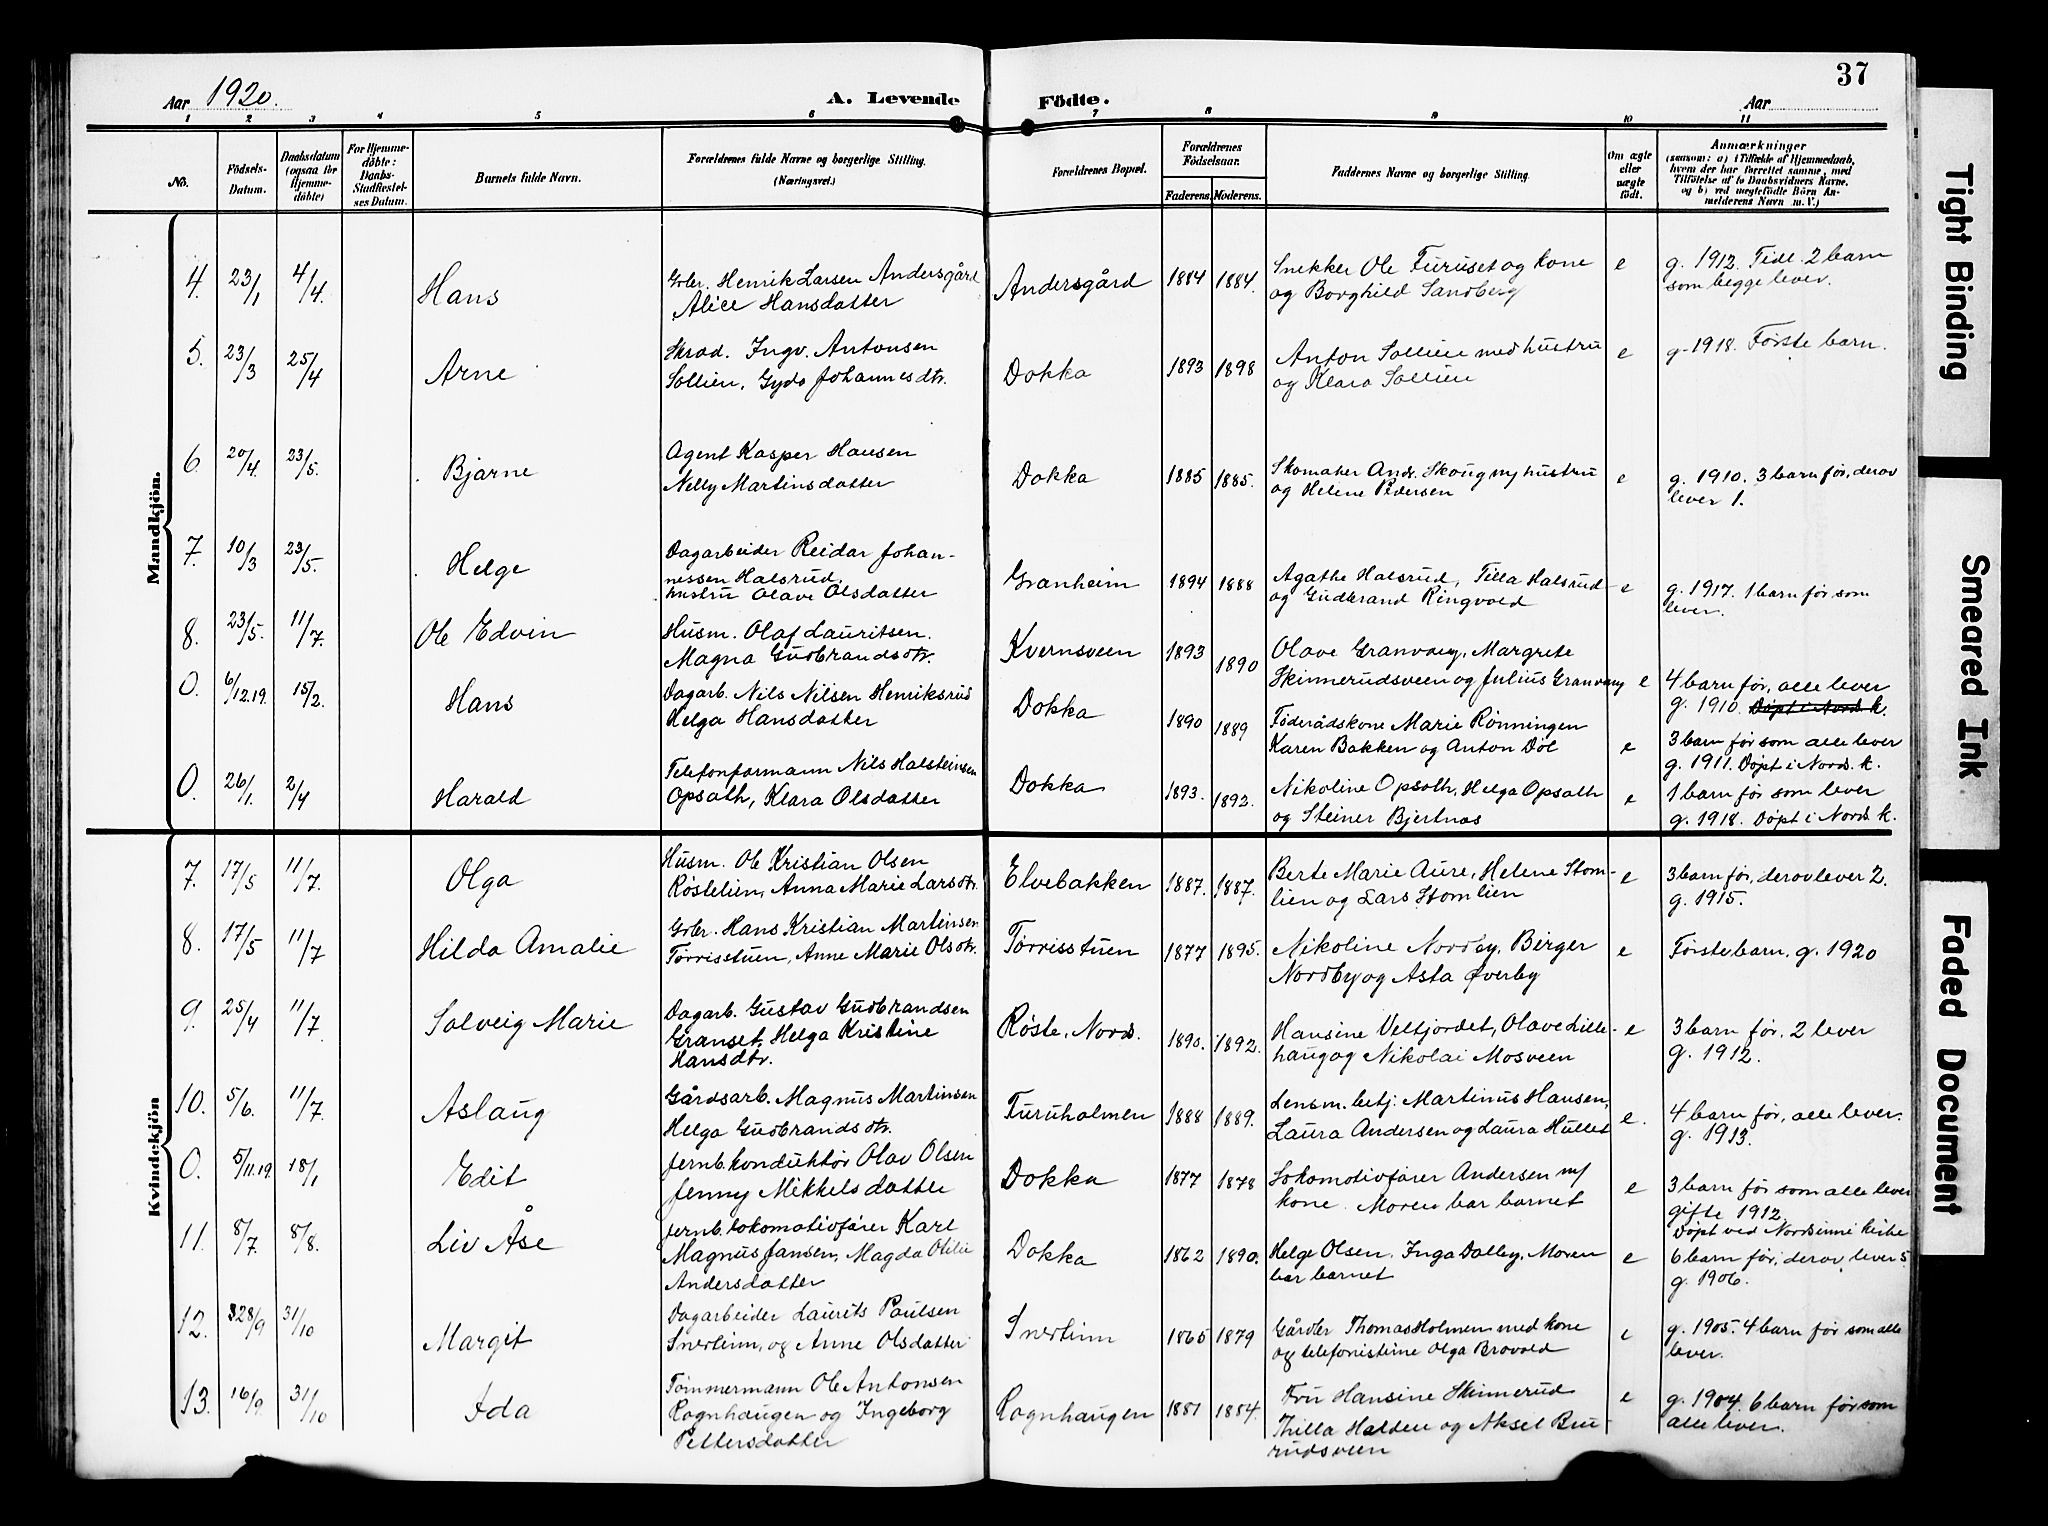 37
Aar 1920.
A. Levende
Födte.
Aar
1 2 3 4 5 6 7 8 9 10 11
No.
Födsels-
Datum.
Daabsdatum
(ogsaa for
Hjemme-
döbte)
For Hjemme-
döbte:
Daabs-
Stadfæstel-
ses Datum.
Barnets fulde Navn.
Forældrenes fulde Navne og borgerlige Stilling.
(Næringsvei.)
Forældrenes Bopæl.
Forældrenes
Födselsaar.
Faderens. Moderens.
Faddernes Navne og borgerlige Stilling.
Om ægte
eller
uægte
födt.
Anmærkninger
(saasom: a) i Tilfælde af Hjemmedaab,
hvem der har forrettet samme, med
Tilföielse af to Daabsvidners Navne.
og b) ved uægtefödte Börn An-
melderens Navn m. V.)
Mandkjön.
4. 23/1 4/4. Hans
Grbr. Henrik Larsen Andersgård
Alice Hansdatter
Andersgård 1884 1884.
Snekker Ole Furuset og kone
og Borghild Sandberg
e
g. 1912. Tidl. 2 barn
som begge lever.
5. 23/3 25/4 Arne
Skrad. Ingv. Antonsen
Sollien, Gyda Johannesdtr.
Dokka 1893 1898
Anton Sollien med hustru
og Klara Sollien
e
g. 1918. Første barn.
6. 20/4. 23/5. Bjarne
Agent Kasper Hansen
Nelly Martinsdatter
Dokka 1885 1885.
Skomaker Ands. Skoug m/ hustru
og Helene Pedersen
e
g. 1910. 3 barn før, derav
lever 1.
7. 10/3 23/5. Helge
Dagarbeider Reidar Johan-
nessen Halsrud,
hustru Olave Olsdatter
Granheim 1894 1888
Agathe Halsrud, Tilla Halsrud
og Gudbrand Ringvold
e
g. 1917. 1 barn før som
lever.
8. 23/5. 11/7 Ole Edvin
Husm. Olaf Lauritsen.
Magna Gudbrandsdtr.
Kvernsveen 1893 1890
Olave Granvang, Margrete
Skinnerudsveen og Julius Granvang
e
4 barn før, alle lever
g. 1910. Døpt i Nords. k.
0. 6/12.19. 15/2. Hans
Dagarb. Nils Nilsen Henriksrud
Helga Hansdatter
Dokka 1890 1889
Føderådskone Marie Rønningen
Karen Bakken og Anton Døl
e
3 barn før som alle lever
g. 1911. Døpt i Nords. k.
0. 26/1. 2/4 Harald
Telefonformann Nils Halsteinsen
Opsath, Klara Olsdatter
Dokka 1893. 1892.
Nikoline Opsath, Helga Opsath
og Steiner Bjertnæs
e
1 barn før som lever
g. 1918. Døpt i Nords. k.
Kvindekjön
7. 17/5 11/7. Olga
Husm. Ole Kristian Olsen
Røstelien, Anna Marie Larsdtr.
Elvebakken 1887. 1887.
Berte Marie Aure, Helene Stom-
lien og Lars Stomlien
e
3 barn før, derav lever 2.
g. 1915.
8. 17/5 11/7 Hilda Amalie
Grbr. Hans Kristian Martinsen
Tørrisstuen, Anne Marie Olsdtr.
Tørrisstuen 1877 1895.
Nikoline Nordby, Birger
Nordby og Asta Øverby
e
Første barn. g. 1920
9. 25/4 11/7 Solveig Marie
Dagarb. Gustav Gudbrandsen
Granset, Helga Kristine
Hansdtr.
Røste, Nords. 1890. 1892.
Hansine Veltjordet, Olave Lille-
haug og Nikolai Mosveen
e
3 barn før, 2 lever
g. 1912.
10. 5/6. 11/7. Aslaug
Gårdsarb. Magnus Martinsen
Helga Gudbrandsdtr.
Furuholmen 1888 1889.
Lensm. betj. Martinus Hansen,
Laura Andersen og Laura Hullet
e.
4 barn før, alle lever.
g. 1913.
0. 5/11.19 18/1 Edit
Jernb. konduktør Olav Olsen
Jenny Mikkelsdatter
Dokka 1877 1878
Lokomotivfører Andersen m/
kone. Moren bar barnet
e
3 barn før som alle lever
gifte 1912
Døpt ved Nordsinni kirke
11. 8/7. 8/8. Liv Åse
Jernb. lokomotivfører Karl
Magnus Jansen, Magda Otilie
Andersdatter
Dokka 1862 1890.
Helge Olsen, Inga Dalby, Moren
bar barnet
e
6 barn før, derav lever 5
g. 1906.
12. 28/9 31/10 Margit
Dagarbeider Laurits Paulsen
Snertinn, og Anne Olsdatter
Snertinn 1865 1879
Gårdbr Thomas Holmen med kone
og telefonistinne Olga Brovold
e
g. 1905. 4 barn før som alle
lever.
13. 16/9. 31/10 Ida
Tømmermann Ole Antonsen
Rognhaugen og Ingeborg
Pettersdatter
Rognhaugen 1881 1884.
Fru Hansine Skinnerud
Thilla Halden og Aksel Bru-
rudsveen
e
g. 1904. 6 barn før som
alle lever.
Tight Binding
Smeared Ink
Faded Document